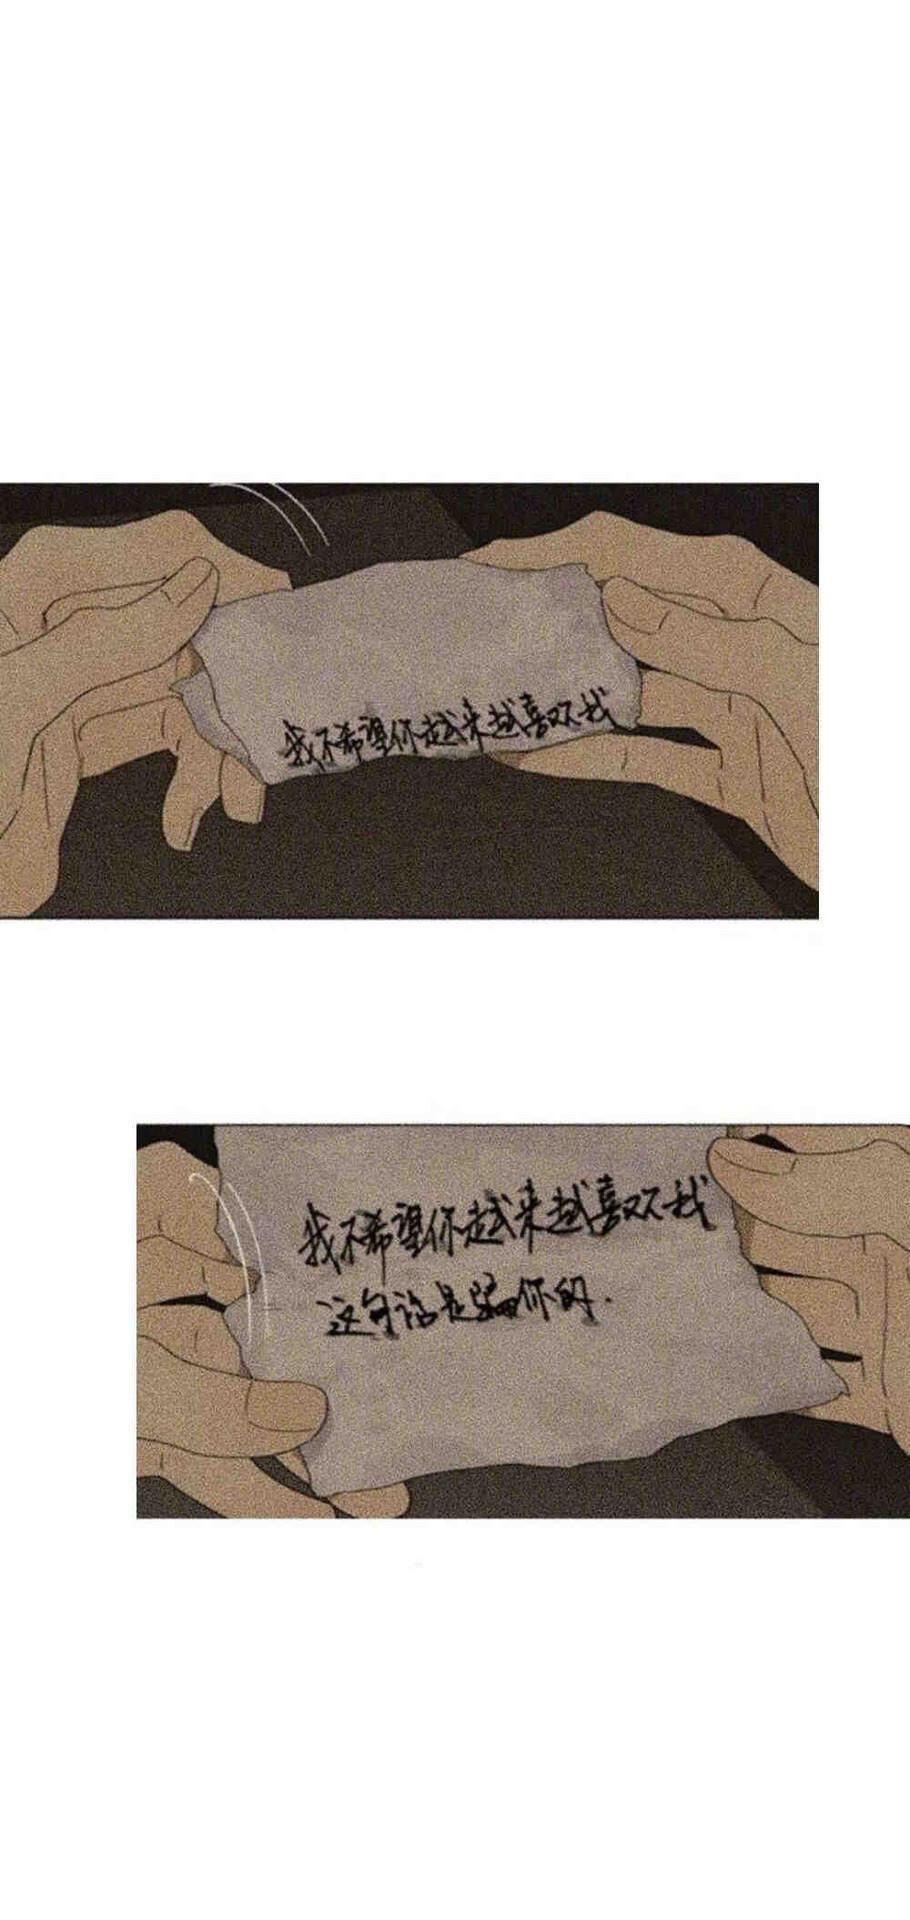 我不希望你越来越喜欢我
我不希望你越来越喜欢我
这句话是骗你的.